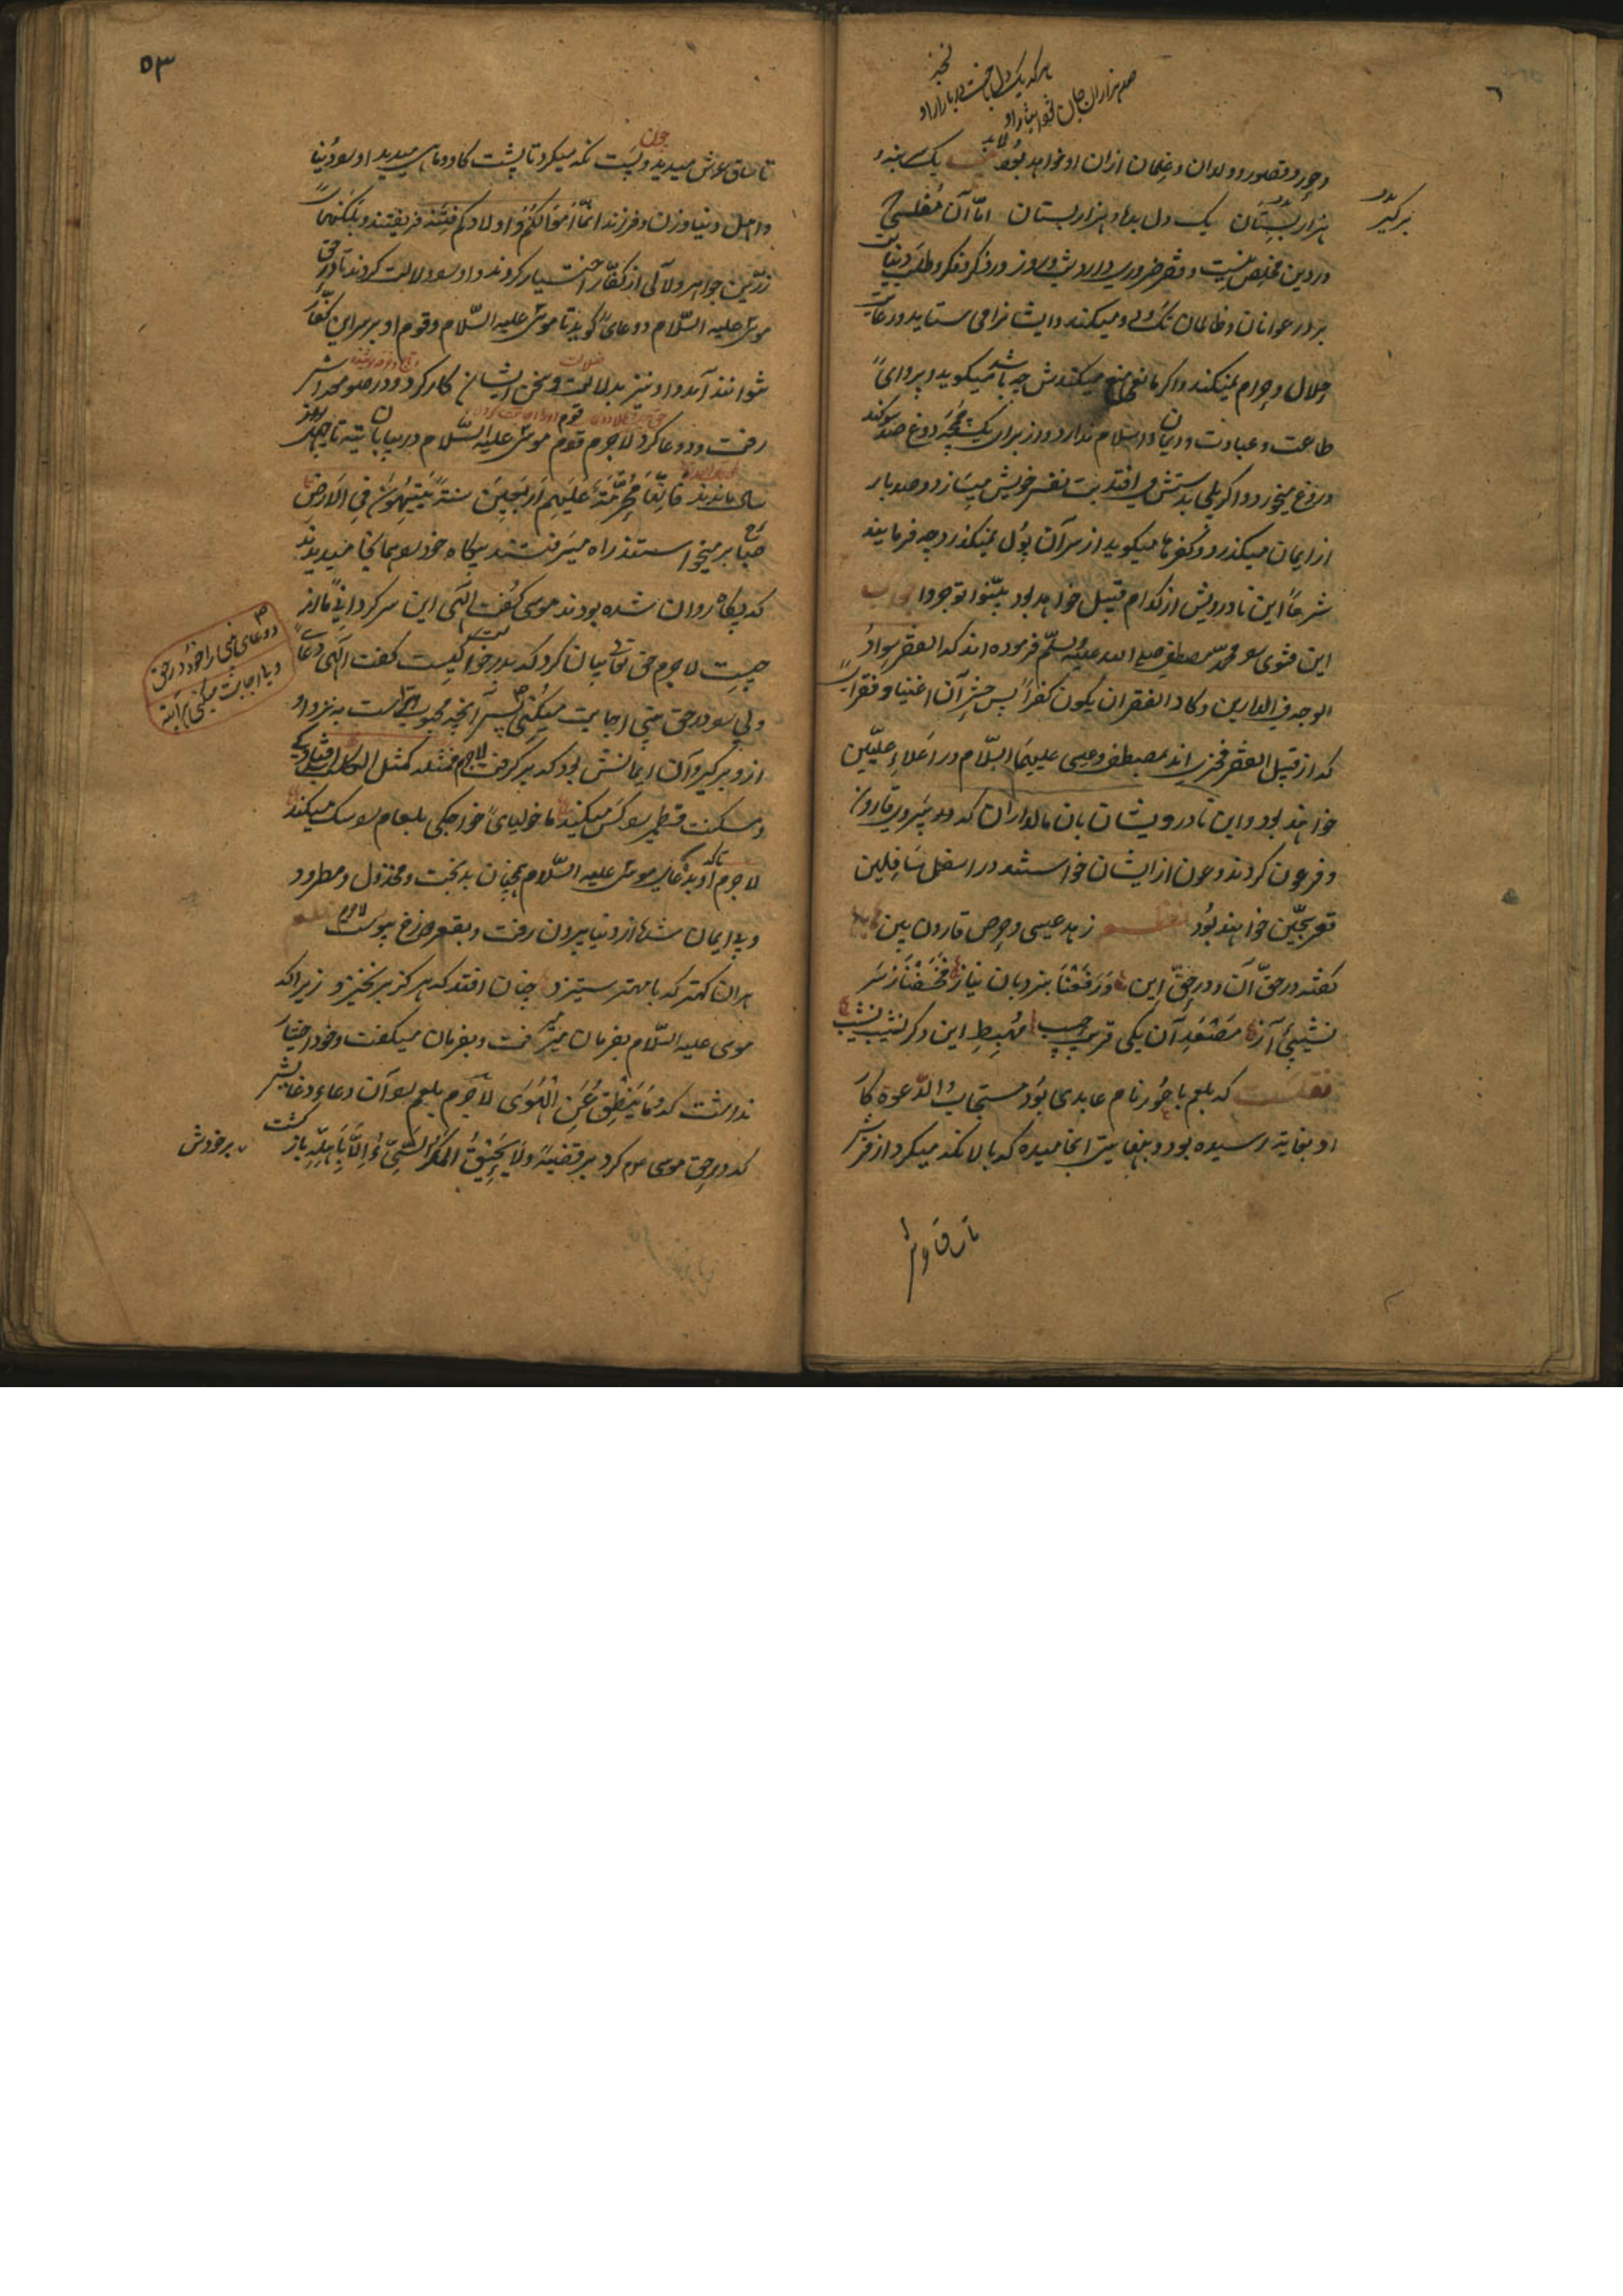 صد هزاران جان
هر که یک دل باخت در بازار او
و حور و قصور و ولدان و غلمان ازان او خواهد بود یک بنه و
هزار بستان یک دل بده و هزار بستان اما آن مفلسی
در دین مخلص نیست و فقر ضروری دارد و شب و روز در ذکر و فکر و طلب دنیاست
بر در عوانان و ظالمان تک و دو میکند و ایشانرا می ستاید و رعایت
حلال و حرام نمیکند و اگر مانعی منع میکندش چه باشد میگوید و پروای
طاعت و عبادت و ایمان و اسلام ندارد و از برای یک دوغ صد سوگند
دروغ میخورد و اگر پلی بدستش می افتد بت نفس خویش میسازد و صد بار
از ایمان میگذرد و کفرها میگوید از سر آن پول نمیگذرد چه فرمایند
شرعا این نادرویش از کدام قبیل خواهد بود بینوا توجروا جواب
این فتوی محمد مصطفی صلی الله علیه وسلم فرموده اند که الفقر سواد
الوجه فی الدارین و کاد الفقر ان یکون کفرا پس حشر آن اغنیا و فقرا
که از قبیل الفقر فخری اند بمصطفی و عیسی علیهما السلام در اعلاء علیین
خواهند بود و این نادرویشان بان مالداران که در پیروی قارون
و فرعون کردند و عون از ایشان خواستند در اسفل سافلین
قعر سجین خواهند بود نظم زهد عیسی و حرص قارون بین
گفته در حق آن و در حق این ورفعنا بنردبان نیاز فخسفنا ز سر
نشیب آز مصعد آن یکی قریب حسیب مهبط این دگر نشیب نشیب
نقلست که بلعم باعور نام عابدی بود مستجاب الدعوة کار
او بغایة رسیده بود و بنهایت انجامیده که بالا نگه میکرد از فرش
۵۳
تا ساق عرش میدید و چون پست نگه میکرد تا پشت گاو و ماهی میدید او دنیا
و اهل دنیا و زن و فرزند انما اموالکم و اولادکم فتنة فریفتند و
زرین جواهر و لآلی از کفار اختیار کردند و او دلالت کردند تا در حق
موسی علیه السلام دو دعای گوید تا موسی علیه السلام و قوم او بر سر این کفار
نتوانند آمد و او نیز بدلالت و سخن ایشان کار کرد و در صومعه اش
رفت و دعا کرد لاجرم قوم موسی علیه السلام در بیابان تیه تا چهل
سال ماندند فانها محرمة علیهم اربعین سنة یتیهون فی الارض
صباح برمیخواستند راه میرفتند بیگاه خود همانجا میدیدند
که پگاه روان شده بودند موسی گفت الهی این سرگردانی ما از
چیست لاجرم حق تعالی بیان کرد که گفت الهی دعای
ولی در حق نبی اجابت میکنی پس آنچه محبوبترست به نزد او
ازو برگیر و آن ایمانش بود که برگرفت لاجرم فمثله کمثل الکلب
و مسکنت قطمیر کس میکند ماخولیای خواجگی بلعام سگ میکند
لاجرم او بدعای موسی علیه السلام همچنان بدبخت و مخذول و مطرود
و بی ایمان از دنیا بیرون رفت و بقعر دوزخ پیوست نظم
هران کهتر که با مهتر ستیزد چنان افتد که هرگز برنخیزد زیرا که
موسی علیه السلام بفرمان میرفت و بفرمان میگفت و خود اختیار
نداشت که وما ینطق عن الهوی لاجرم بلعم آن دعا
که در حق موسی م کرد بر قضیة ولا یحیق المکر السیئ الا باهله باز گشت
بر خودش
دعای نبی را در حق
اجابت میکنی